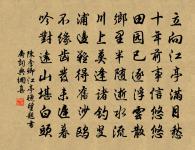 立向江亭滿目愁
十年前事信悠悠
田園已逐浮雲散
鄉里半隨逝水流
川上莫逢諸釣叟
浦邊難得舊沙鷗
不緣齒髮未遲暮
吟對遠山堪白頭
陳季卿江亭晚望題書
齋詞典網